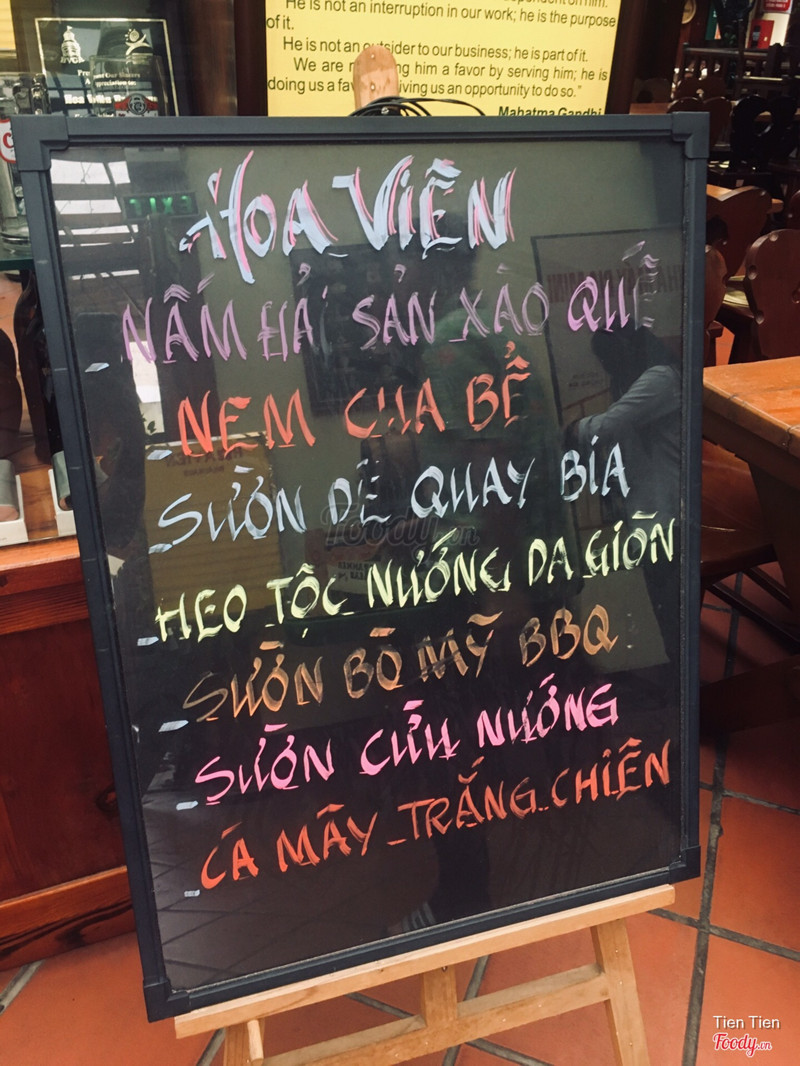 He is not an interruption in our work; he is the purpose
of it.
He is not an outsider to our business; he is part of it.
him a favor by serving him; he is
doing us a giving us an opportunity to do so."
Mahatma Gandhi
HOA VIÊN
- NẤM HẢI SẢN XÀO QUẾ
- NEM CUA BỂ
- SƯỜN DÊ QUAY BIA
- HEO TỘC NƯỚNG DA GIÒN
- SƯỜN BÒ MỸ BBQ
- SƯỜN CỪU NƯỚNG
- CÁ MÂY_TRẮNG_CHIÊN
Foody.vn
Tien Tien
Foody.vn